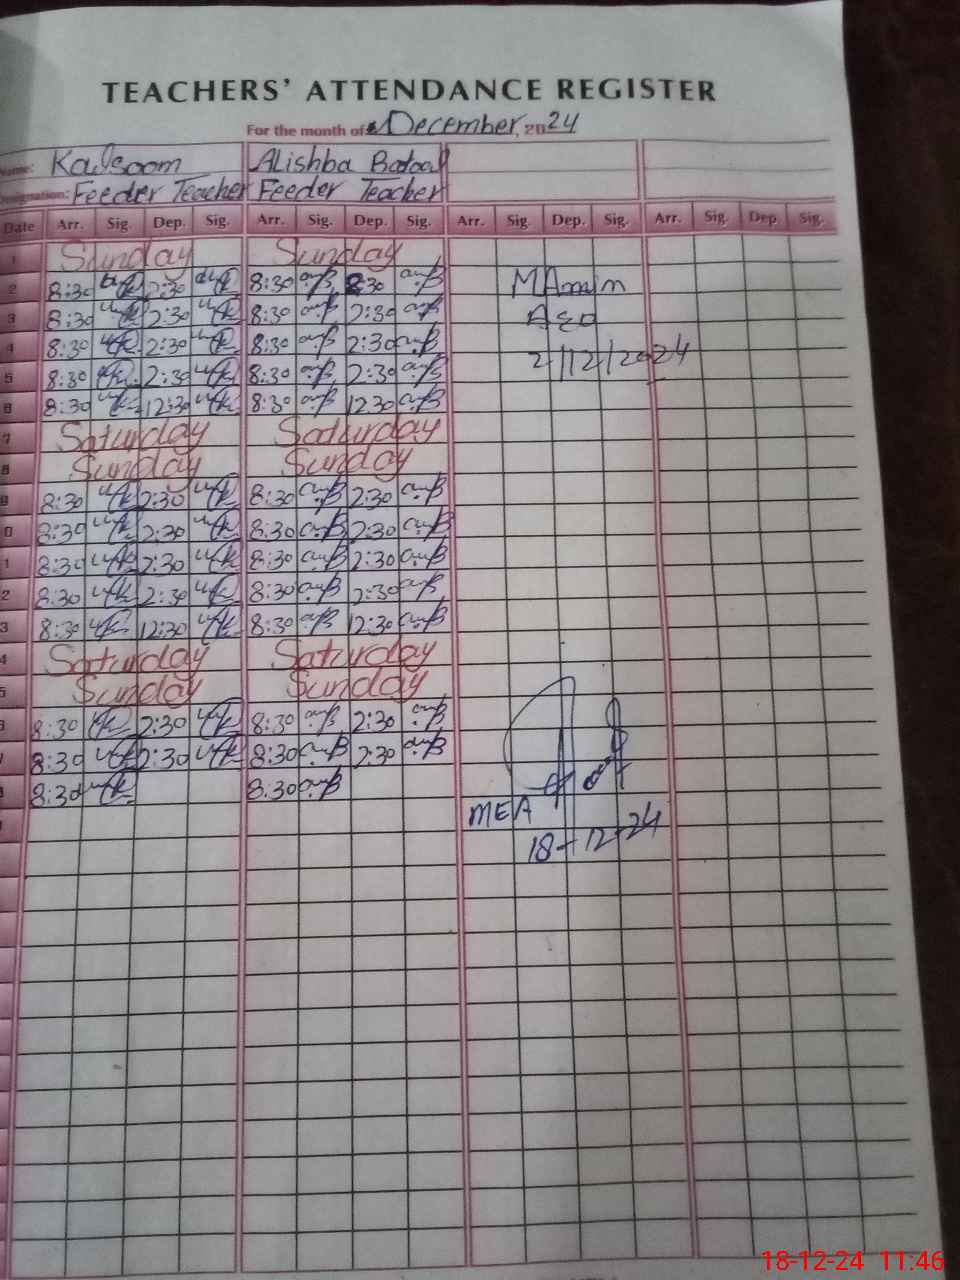 TEACHERS' ATTENDANCE REGISTER
For the month of December, 2024
Name: Kalsoom Alishba Batool
Designation: Feeder Teacher Feeder Teacher
Date Arr. Sig. Dep. Sig. Arr. Sig. Dep. Sig. Arr. Sig. Dep. Sig. Arr. Sig. Dep. Sig.
1 Sunday Sunday
2 8:30 2:30 8:30 2:30 MAmin
3 8:30 2:30 8:30 2:30 AEO
4 8:30 2:30 8:30 2:30 2/12/2024
5 8:30 2:30 8:30 2:30
6 8:30 12:30 8:30 12:30
7 Saturday Saturday
8 Sunday Sunday
9 8:30 2:30 8:30 2:30
0 8:30 2:30 8:30 2:30
1 8:30 2:30 8:30 2:30
2 8:30 2:30 8:30 2:30
3 8:30 12:30 8:30 12:30
4 Saturday Saturday
5 Sunday Sunday
8:30 2:30 8:30 2:30
8:30 2:30 8:30 2:30
8:30 8:30
MEA
18-12-24
18-12-24 11:46